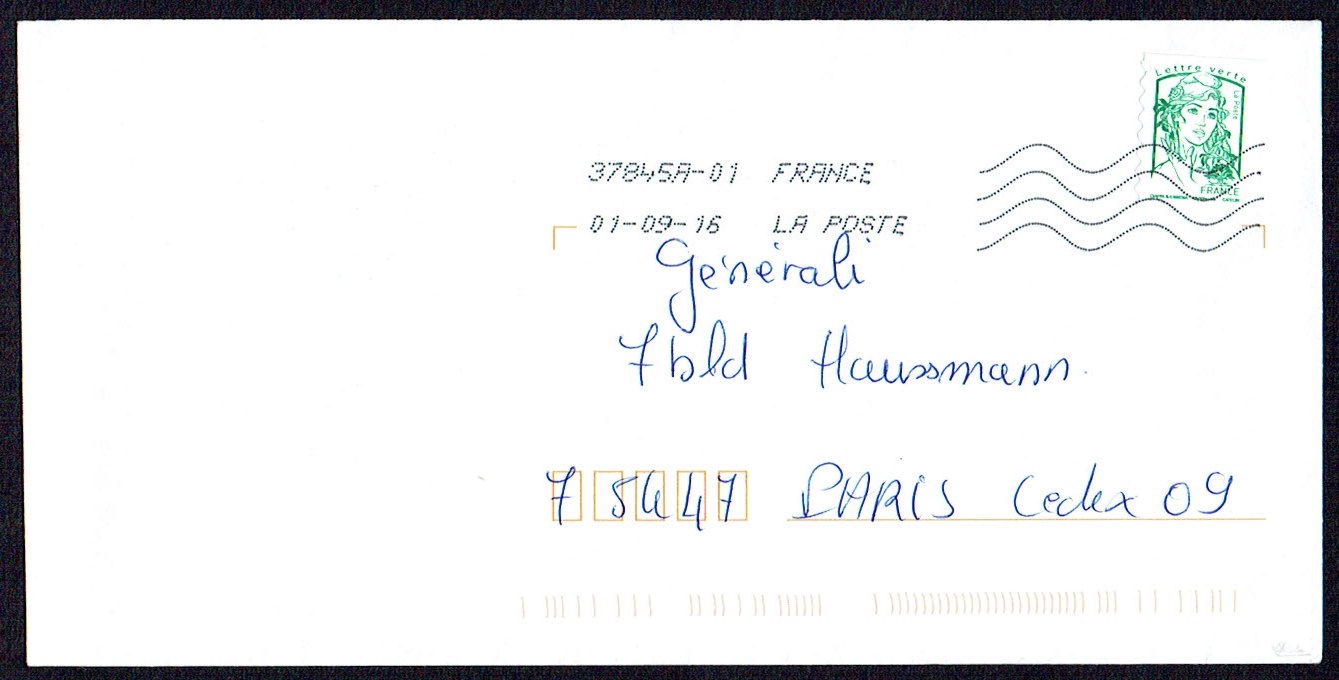 Lettre verte
La Poste
FRANCE
37845A-01 FRANCE
01-09-16 LA POSTE
Générali
7 bld Haussmann.
75447 PARIS Cedex 09